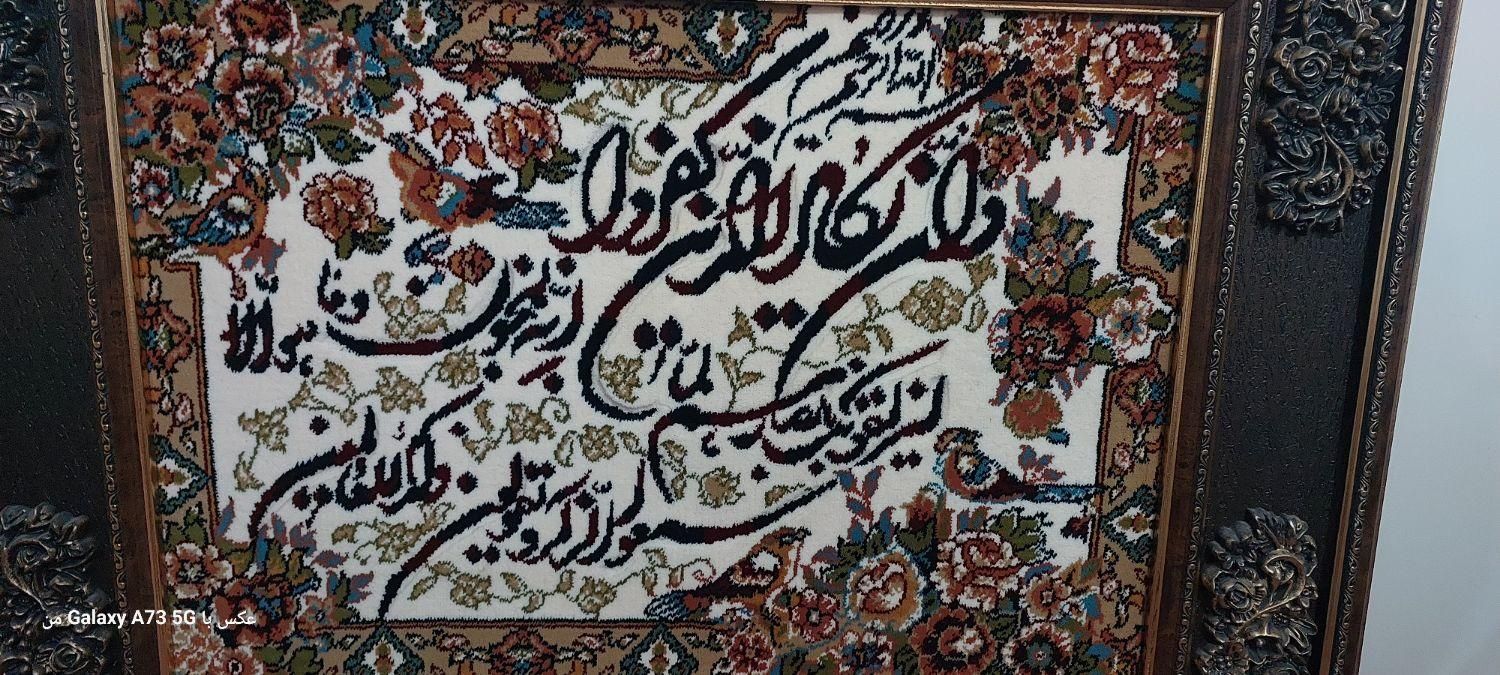 بسم الله الرحمن الرحیم
وان یکاد الذین کفروا
لیزلقونک بابصارهم لما
سمعوا الذکر و یقولون
انه لمجنون و ما
هو الا
ذکر للعالمین
عکس با Galaxy A73 5G من